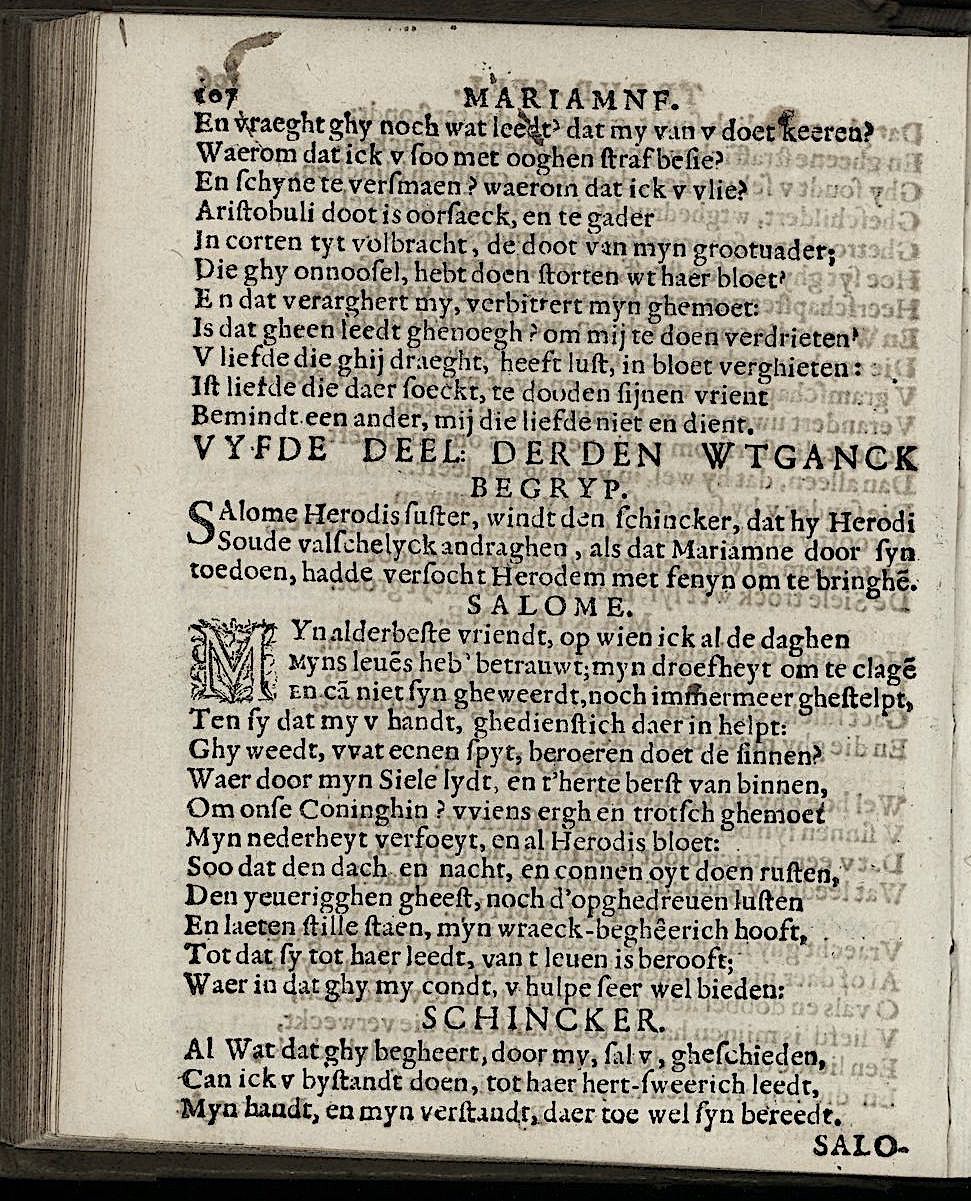 107
MARIAMNE.
En vraeght ghy noch wat leedt’ dat my van v doet keeren?
Waerom dat ick v ſoo met ooghen ſtraf beſie?
En ſchyne te verſmaen? waerom dat ick v vlie?
Ariſtobuli doot is oorſaeck, en te gader
In corten tyt volbracht, de doot van myn grootuader;
Die ghy onnooſel, hebt doen ſtorten wt haer bloet’
En dat verarghert my, verbittert myn ghemoet:
Is dat gheen leedt ghenoegh? om mij te doen verdrieten’
V liefde die ghij draeght, heeft luſt, in bloet verghieten:
Iſt liefde die daer ſoeckt, te dooden ſijnen vrient
Bemindt een ander, mij die liefde niet en dient.
VYFDE DEEL: DERDEN WTGANCK
BEGRYP.
SAlome Herodis ſuſter, windt den ſchincker, dat hy Herodi
Soude valſchelyck andraghen, als dat Mariamne door ſyn
toedoen, hadde verſocht Herodem met fenyn om te bringhē.
SALOME.
MYn alderbeſte vriendt, op wien ick al de daghen
Myns leuēs heb’ betrauwt; myn droefheyt om te clagē
En cā niet ſyn gheweerdt, noch immermeer gheſtelpt,
Ten ſy dat my v handt, ghedienſtich daer in helpt:
Ghy weedt, vvat eenen ſpyt, beroeren doet de ſinnen?
Waer door myn Siele lydt, en t’herte berſt van binnen,
Om onſe Coninghin? vviens ergh en trotſch ghemoet
Myn nederheyt verfoeyt, en al Herodis bloet:
Soo dat den dach en nacht, en connen oyt doen ruſten,
Den yeuerigghen gheeſt, noch d’opghedreuen luſten
En laeten ſtille ſtaen, myn wraeck-beghêerich hooft,
Tot dat ſy tot haer leedt, van t leuen is berooft;
Waer in dat ghy my condt, v hulpe ſeer wel bieden:
SCHINCKER.
Al Wat dat ghy begheert, door my, ſal v, gheſchieden,
Can ick v byſtandt doen, tot haer hert-ſweerich leedt,
Myn handt, en myn verſtandt, daer toe wel ſyn bereedt.
SALO-